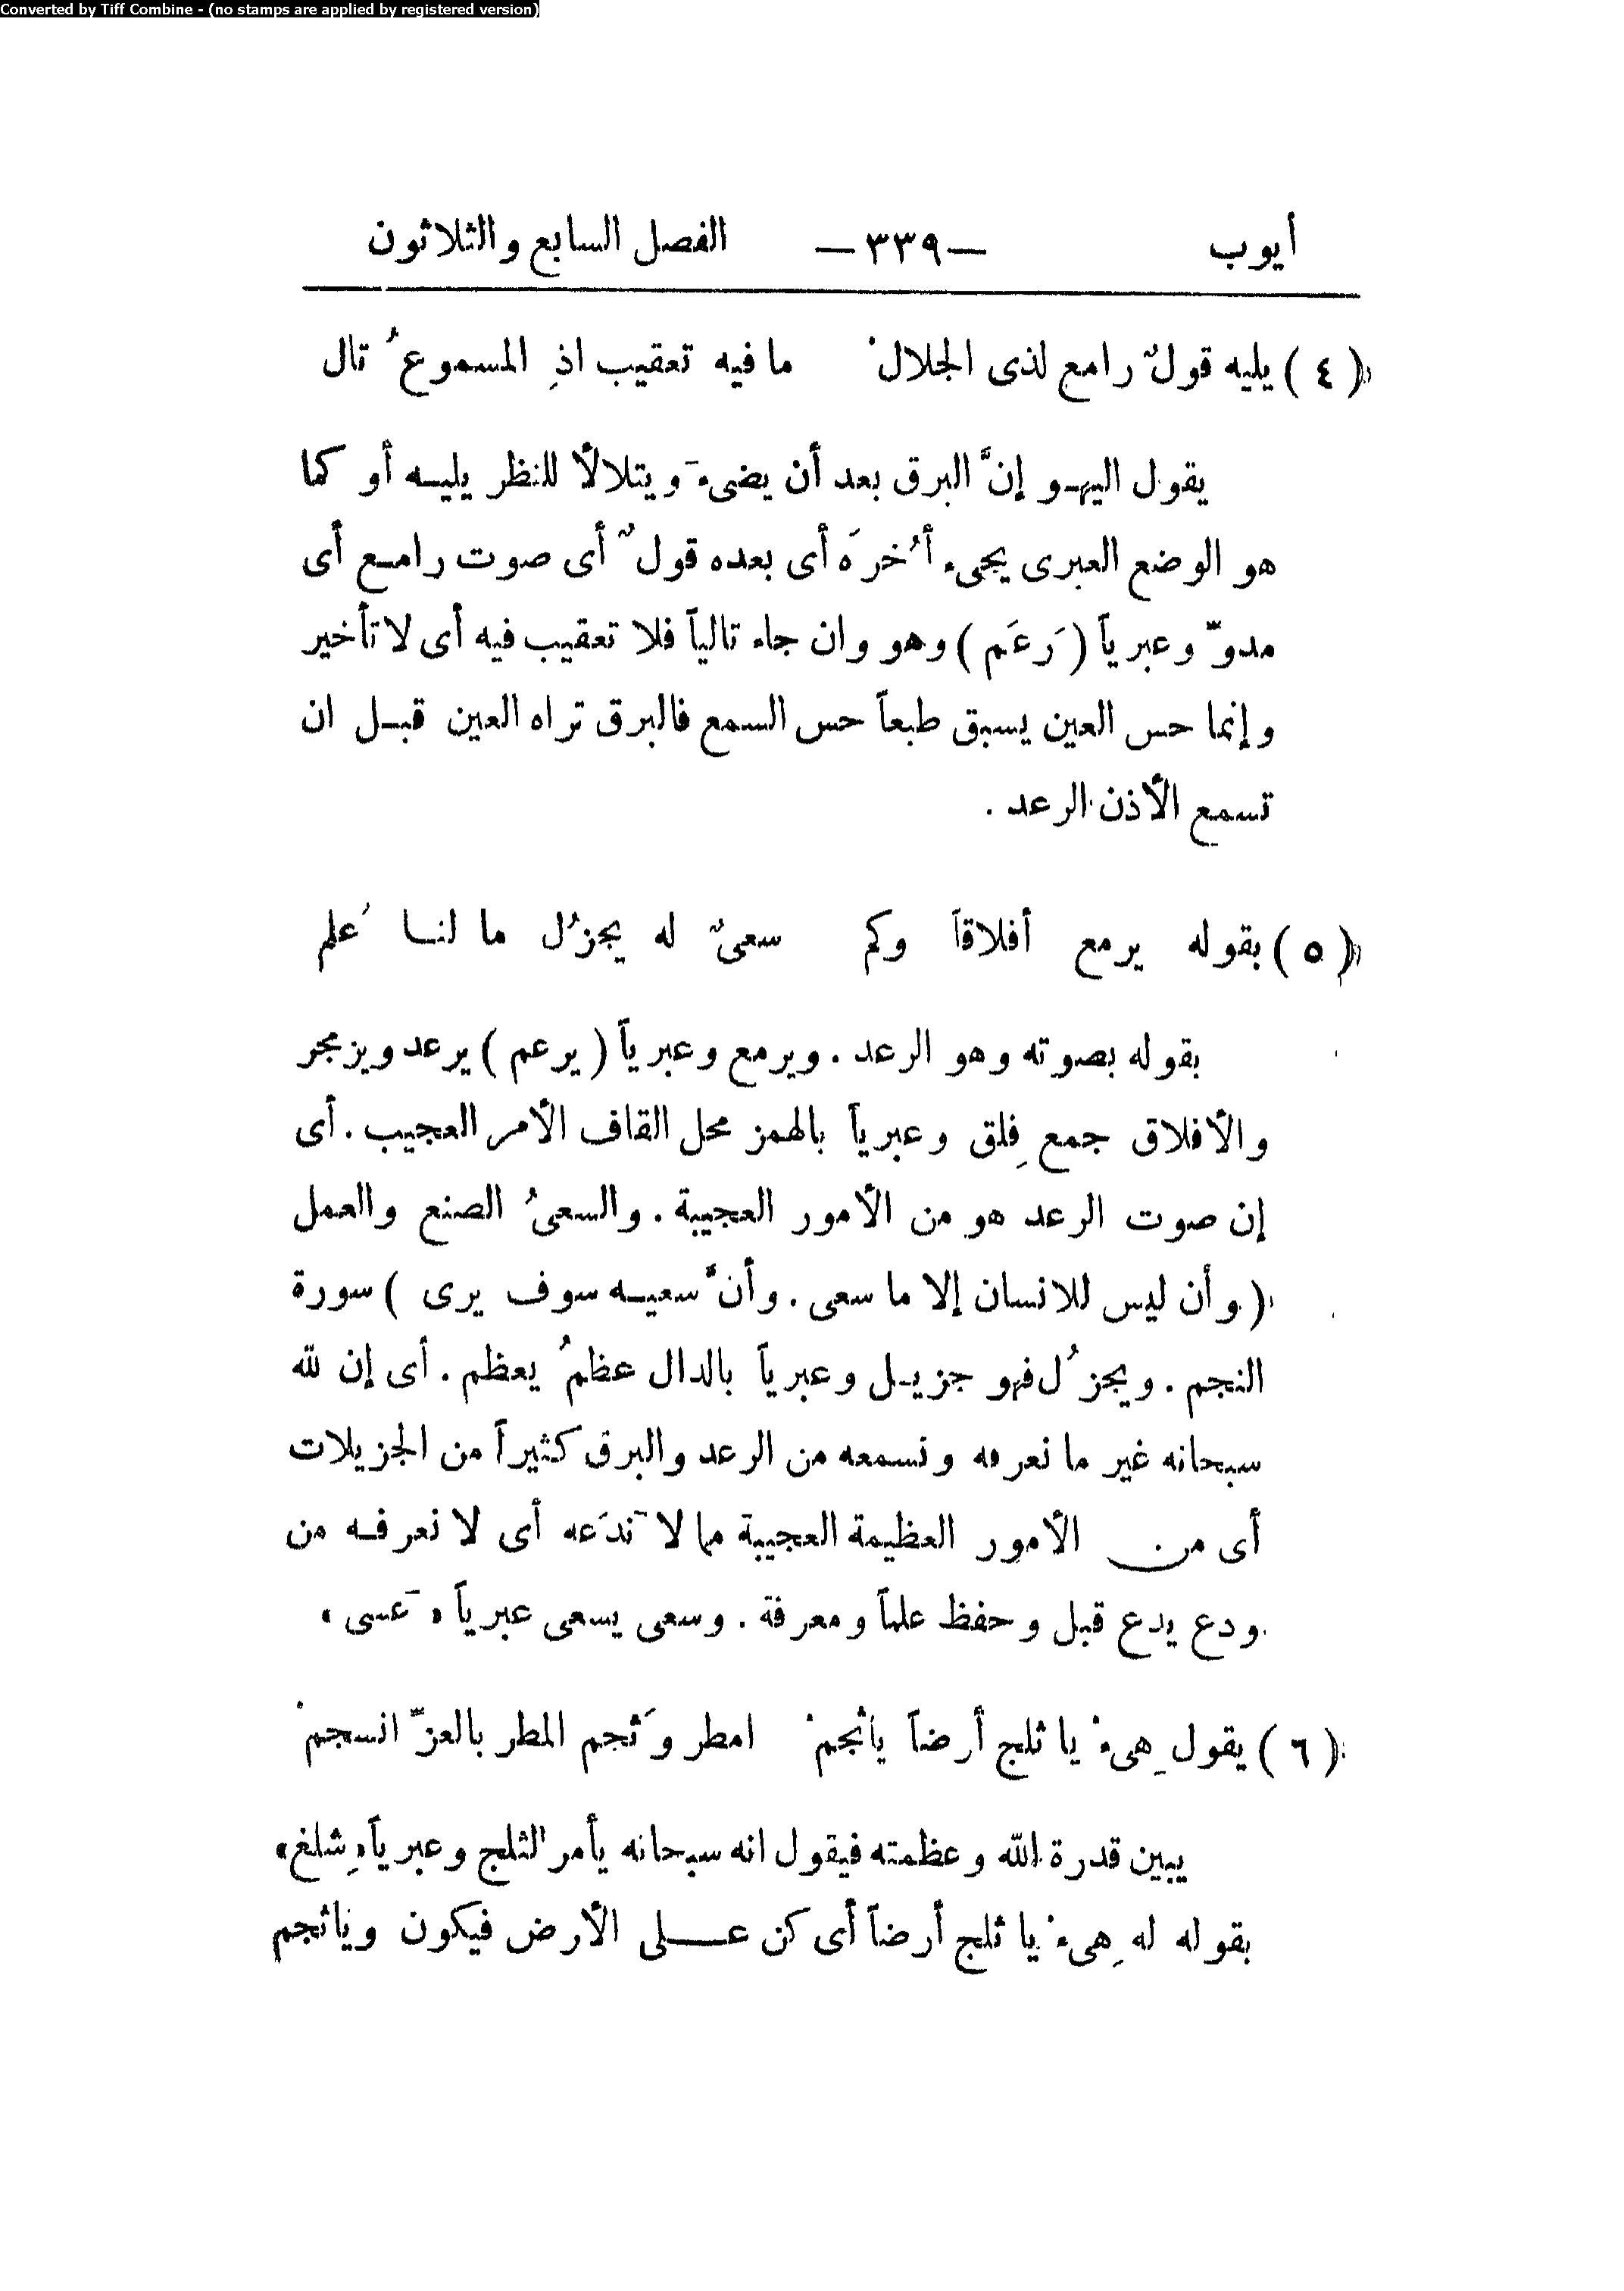 Converted by Tiff Combine - (no stamps are applied by registered version)
أيوب —٣٣٩— الفصل السابع والثلاثون
(٤) يليه قولٌ رامع لذى الجلالْ ما فيه تعقيب اذِ المسموعُ تال
يقول اليهو إنَّ البرق بعد أن يضىءَ ويتلالأ للنظر يليه أو كما
هو الوضع العبرى يجىء أُخرَه أى بعده قولٌ أى صوت رامع أى
مدوّ وعبرياً (رَعَم) وهو وان جاء تالياً فلا تعقيب فيه أى لا تأخير
وإنما حس العين يسبق طبعاً حس السمع فالبرق تراه العين قبل ان
تسمع الأذن الرعد .
(٥) بقوله يرمع أفلاقاً وكم سعىٌ له يجزُل ما لنا عُلم
بقوله بصوته وهو الرعد . ويرمع وعبرياً (يرعم) يرعد ويزمجر
والأفلاق جمع فِلق وعبرياً بالهمز محل القاف الأمر العجيب . أى
إن صوت الرعد هو من الأمور العجيبة . والسعىُ الصنع والعمل
(وأن ليس للانسان إلا ما سعى . وأنَّ سعيه سوف يرى ) سورة
النجم . ويجزُل فهو جزيل وعبرياً بالدال عظمُ يعظم . أى إن لله
سبحانه غير ما نعرفه ونسمعه من الرعد والبرق كثيراً من الجزيلات
أى من الأمور العظيمة العجيبة مما لا نَدَعه أى لا نعرفه من
ودع يدع قبل وحفظ علماً ومعرفة . وسعى يسعى عبرياً « عَسى »
(٦) يقول هِىءْ يا ثلج أرضاً ياثجمْ امطر وَثجم المطر بالعزّ انسجمْ
يبين قدرة الله وعظمته فيقول انه سبحانه يأمر الثلج وعبرياً «شِلغ»
بقوله له هِىءْ يا ثلج أرضاً أى كن على الأرض فيكون وياثجم